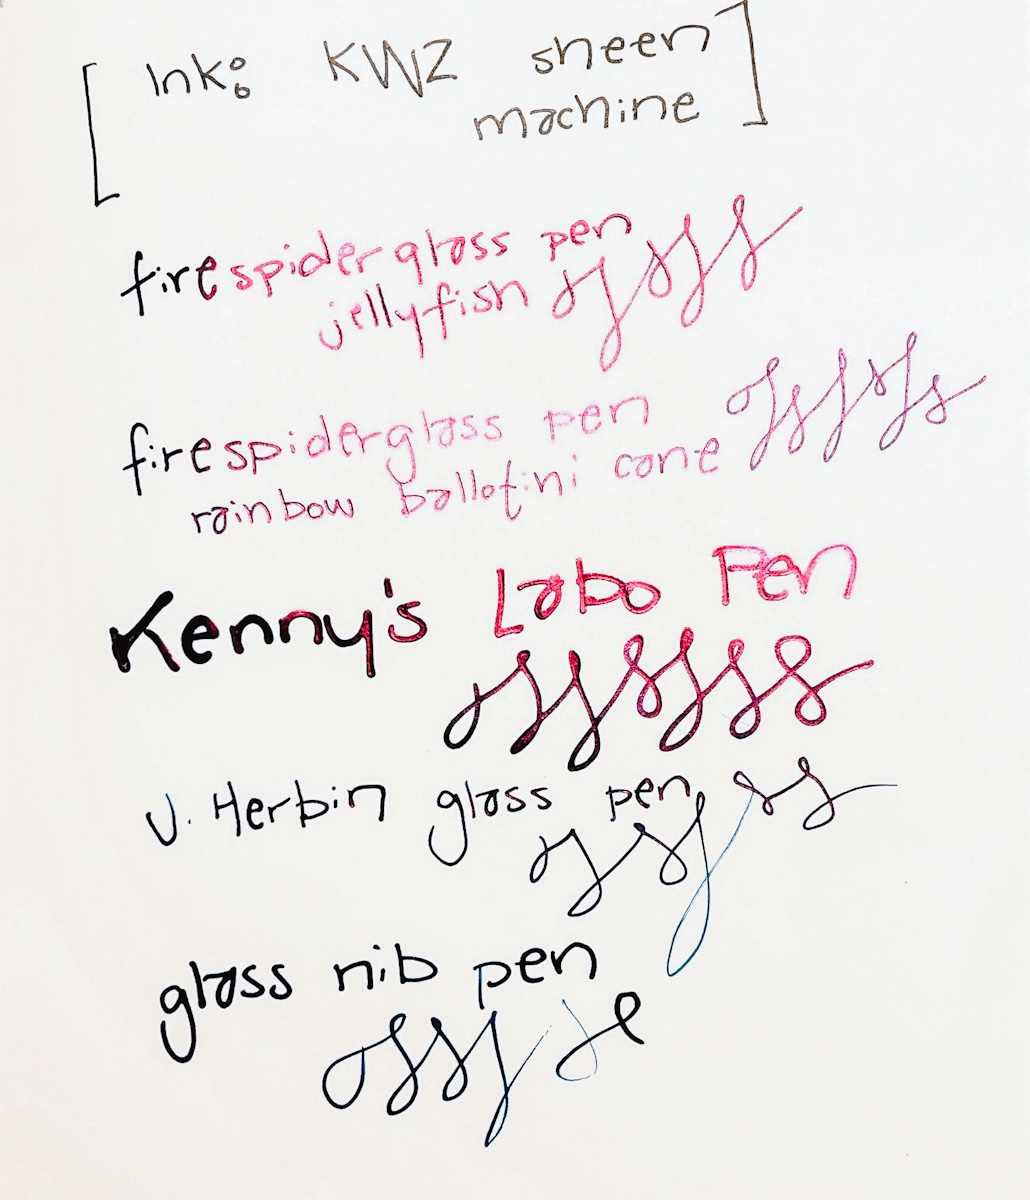 [ Ink: KWZ sheen
machine ]
firespiderglass pen
jellyfish
firespiderglass pen
rainbow ballotini cane
Kenny's Labo Pen
J. Herbin glass pen
glass nib pen